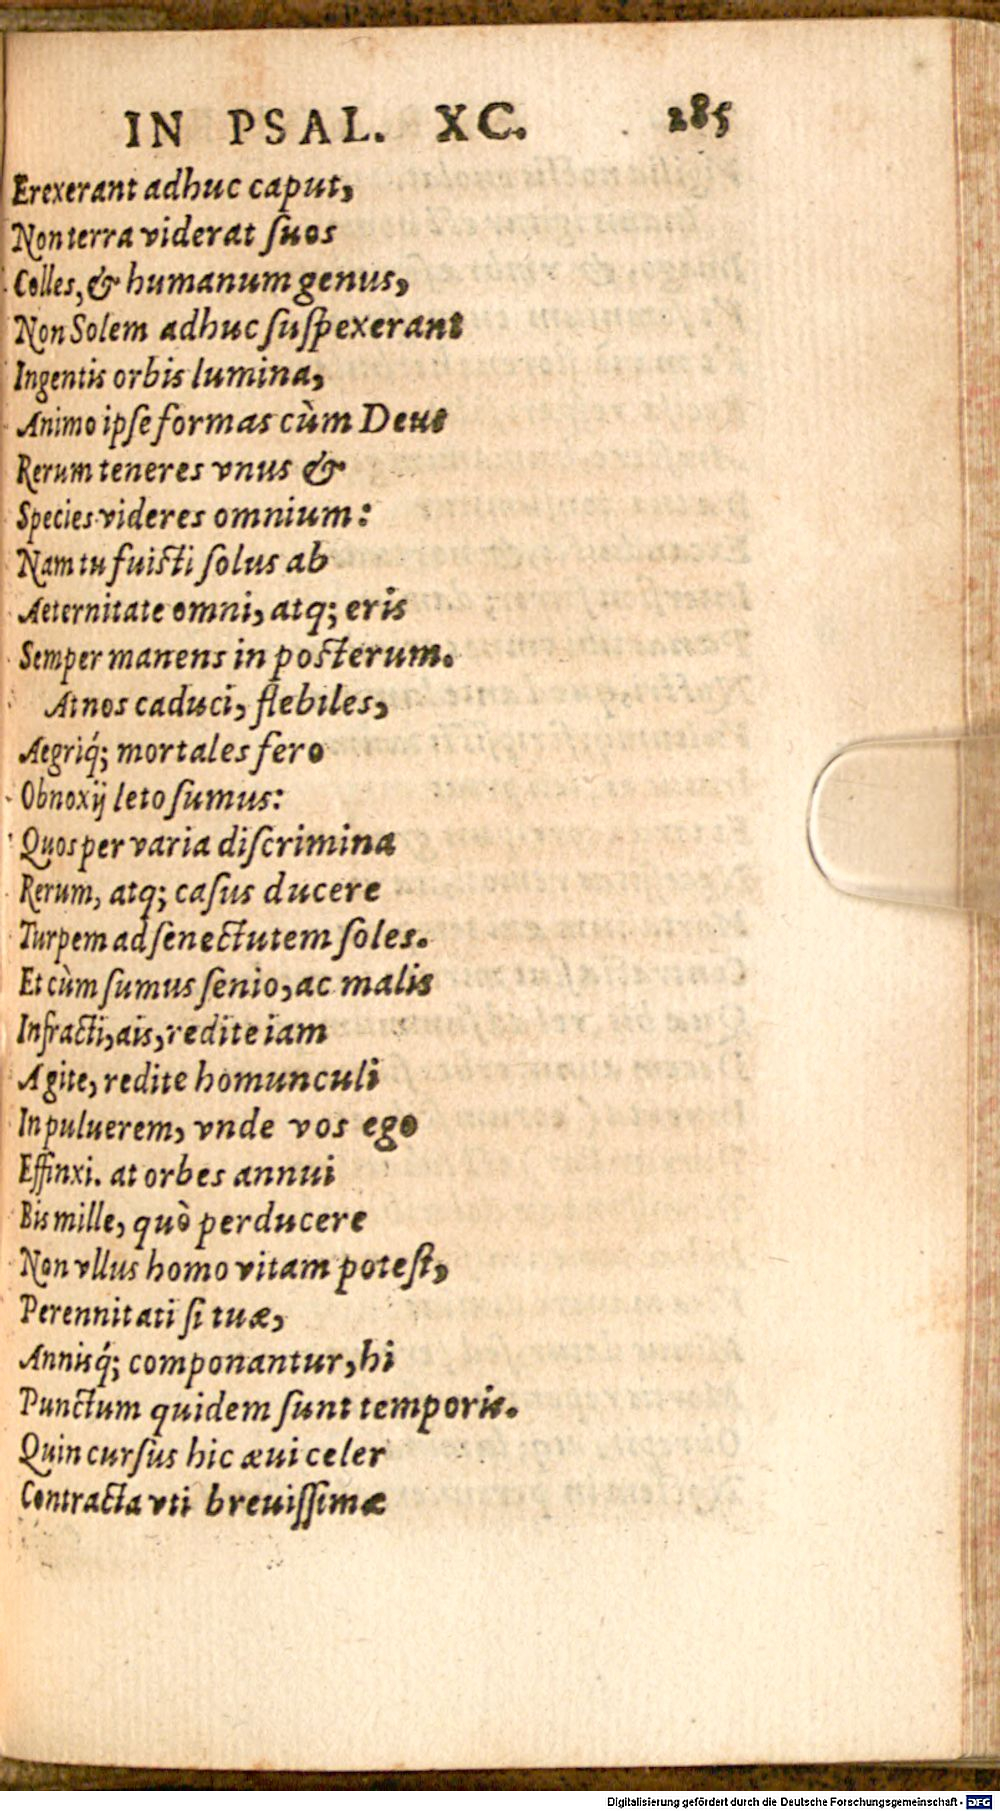 IN PSAL. XC. 285
Erexerant adhuc caput,
Non terra viderat ſuos
Colles, & humanum genus,
Non Solem adhuc ſuſpexerant
Ingentis orbis lumina,
Animo ipſe formas cùm Deus
Rerum teneres vnus &
Species videres omnium:
Nam tu fuiſti ſolus ab
Aeternitate omni, atq; eris
Semper manens in poſterum.
At nos caduci, flebiles,
Aegriq́; mortales fero
Obnoxij leto ſumus:
Quos per varia diſcrimina
Rerum, atq; caſus ducere
Turpem ad ſenectutem ſoles.
Et cùm ſumus ſenio, ac malis
Infracti, ais, redite iam
Agite, redite homunculi
In puluerem, vnde vos ego
Effinxi. at orbes annui
Bis mille, quò perducere
Non vllus homo vitam poteſt,
Perennitati ſi tuæ,
Annisq́; componantur, hi
Punctum quidem ſunt temporis.
Quin curſus hic æui celer
Contracta vti breuiſſimæ
Digitalisierung gefördert durch die Deutsche Forschungsgemeinschaft - DFG